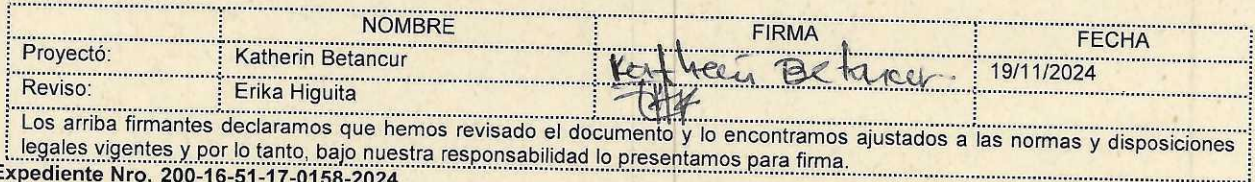 NOMBRE FIRMA FECHA
Proyectó: Katherin Betancur Katherin Betancur 19/11/2024
Reviso: Erika Higuita
Los arriba firmantes declaramos que hemos revisado el documento y lo encontramos ajustados a las normas y disposiciones
legales vigentes y por lo tanto, bajo nuestra responsabilidad lo presentamos para firma.
Expediente Nro. 200-16-51-17-0158-2024